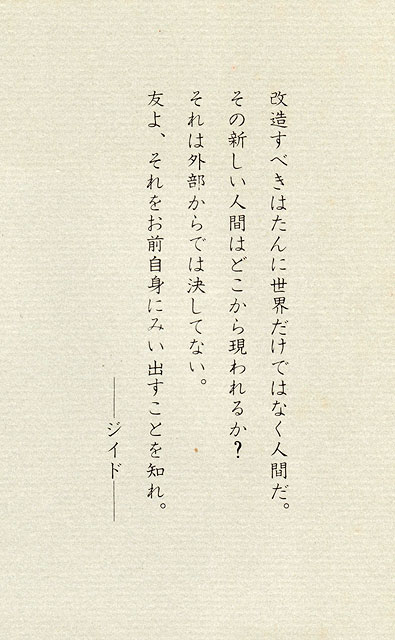 改造すべきはたんに世界だけではなく人間だ。
その新しい人間はどこから現われるか?
それは外部からでは決してない。
友よ、それをお前自身にみい出すことを知れ。
――ジイド――